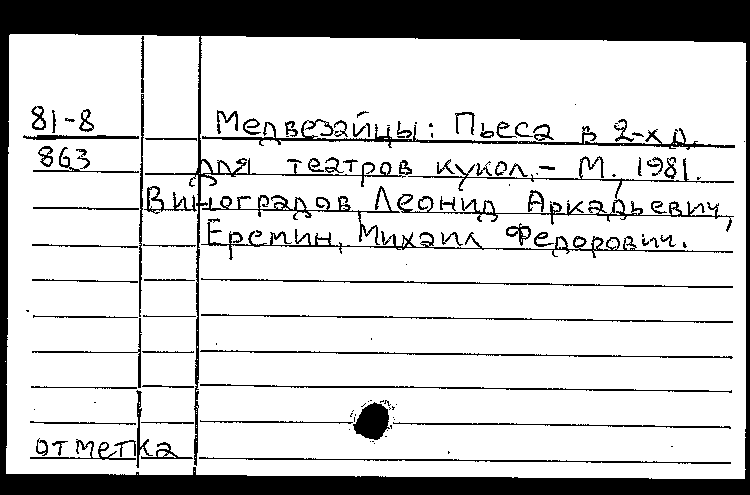 81-8 Медвезайцы: Пьеса в 2-х д.
863 для театров кукол.- М., 1981.
Виноградов, Леонид Аркадьевич,
Еремин, Михаил Федорович.
отметка